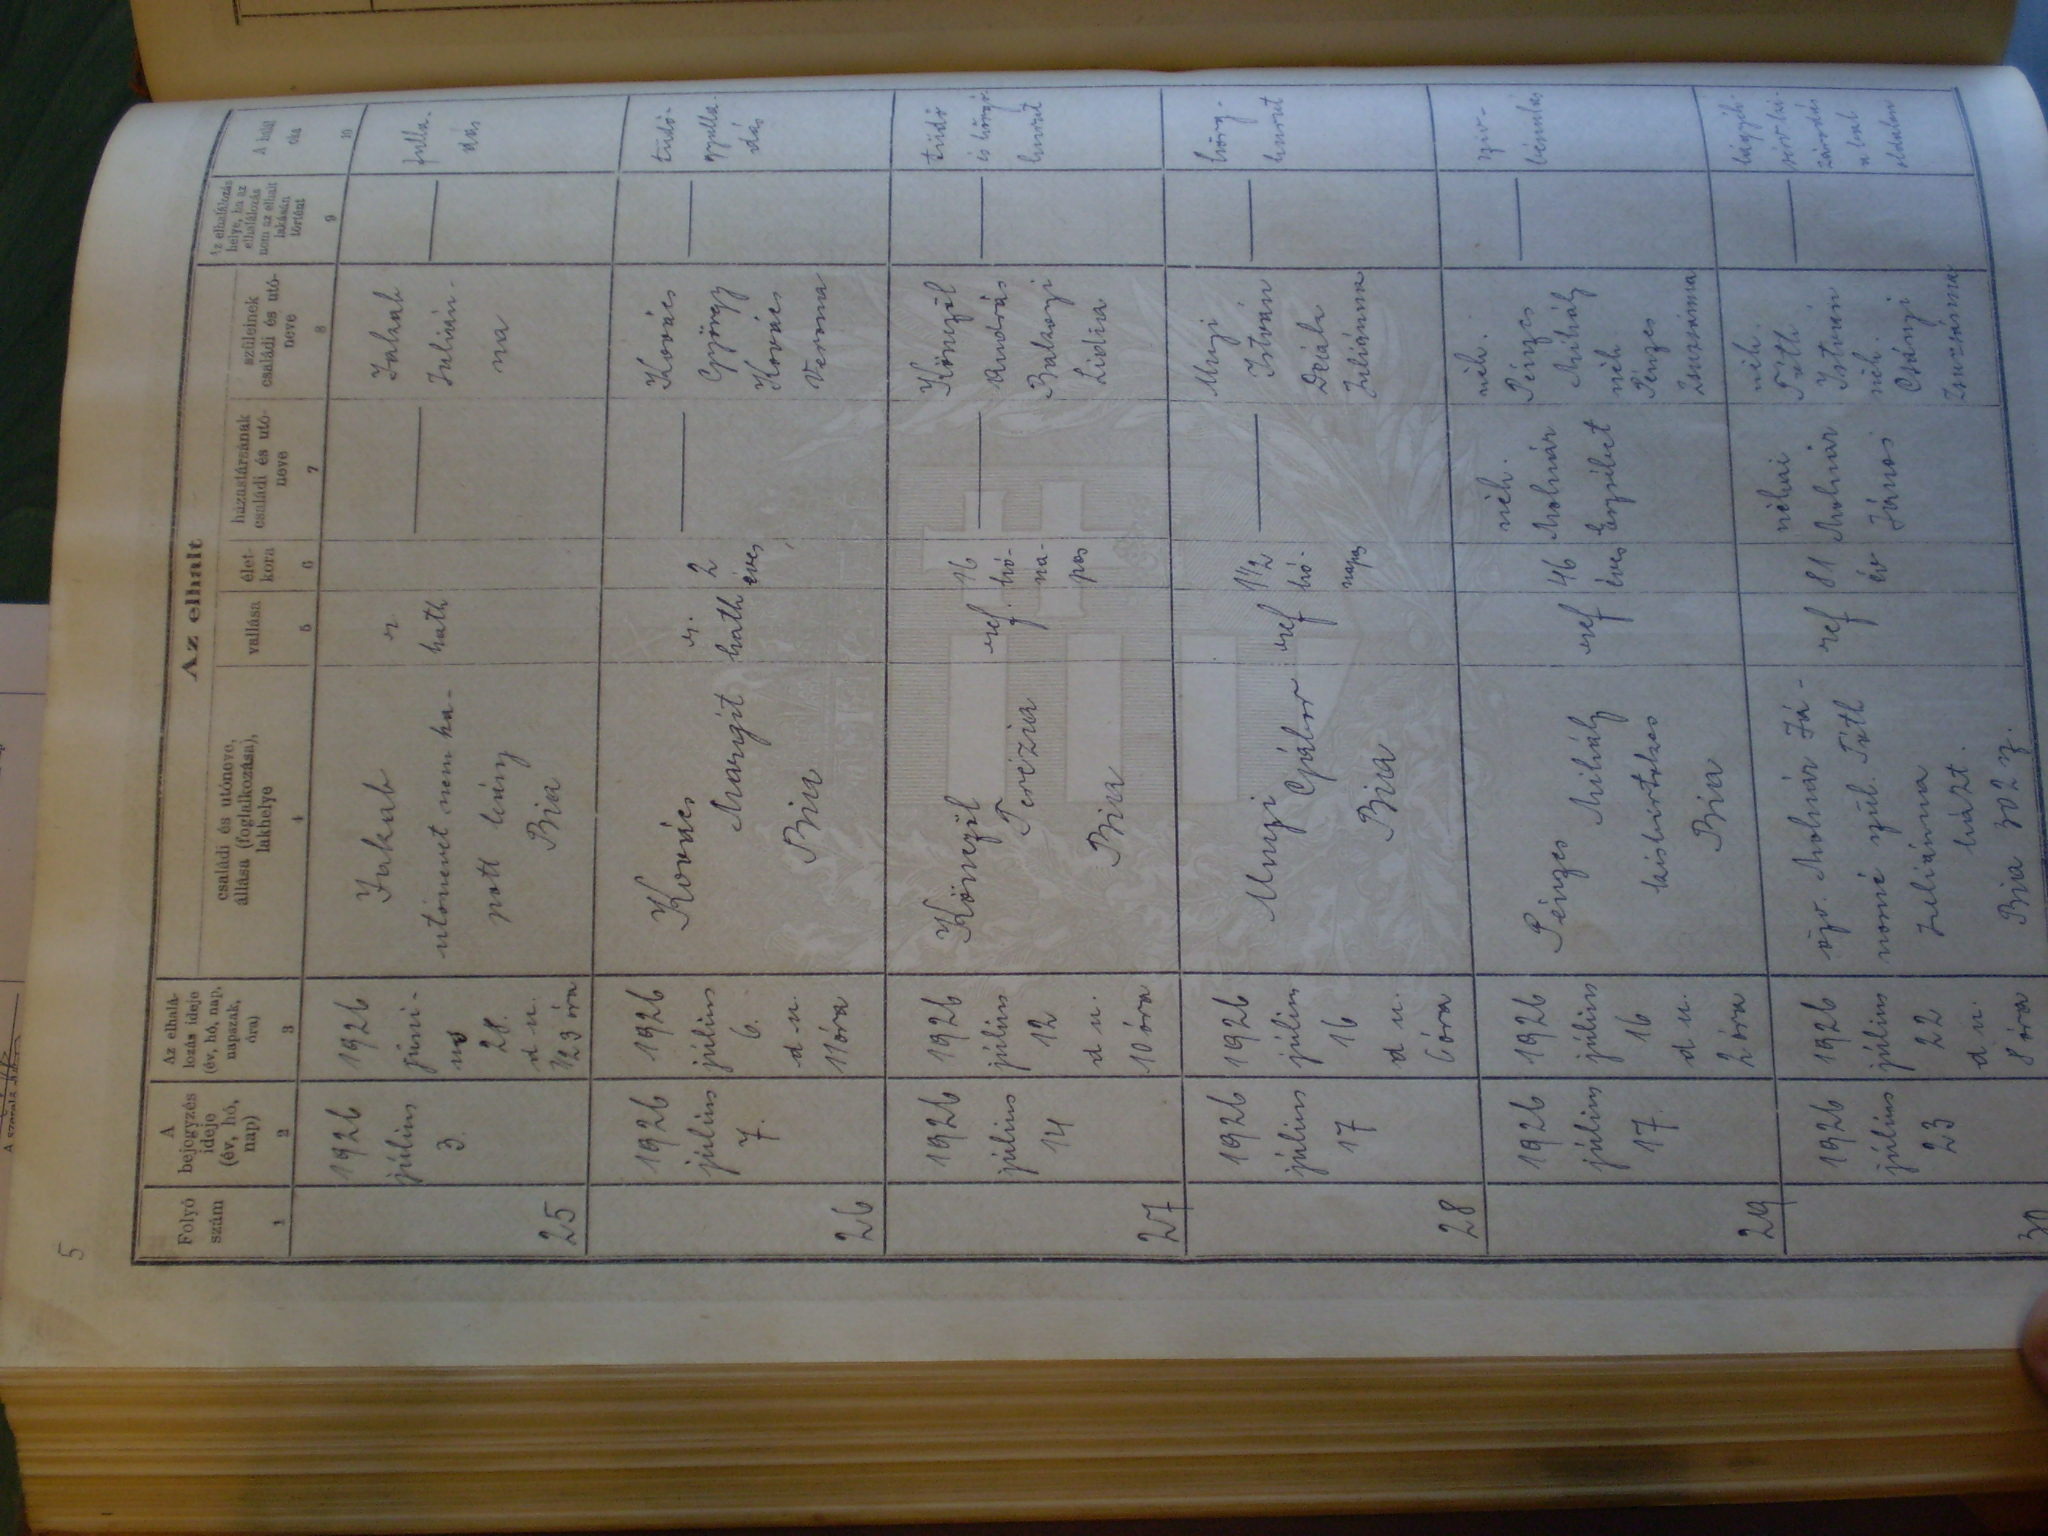 5
Az elhalt
Folyó
szám
A
bejegyzés
ideje
(év, hó,
nap)
Az elhalá-
lozás ideje
(év, hó, nap,
napszak,
óra)
családi és utóneve,
állása (foglalkozása),
lakhelye
vallása
élet-
kora
házastársának
családi és utó-
neve
szüleinek
családi és utó-
neve
Az elhalálozás
helye, ha az
elhalálozás
nem az elhalt
lakásán
történt
A halál
oka
1
2
3
4
5
6
7
8
9
10
25
1926
július
3.
1926
júni-
us
28.
d. u.
1/2 3 óra
Jakab
utónevet nem ka-
pott leány
Bia
r
kath
Jakab
Julián-
na
fulla-
dás
26
1926
július
7.
1926
július
6.
d. u.
11 óra
Kovács
Margit
Bia
r.
kath
2
éves
Kovács
György
Kovács
Verona
tüdő-
gyulla-
dás
27
1926
július
14
1926
július
12
d u.
10 óra
Könczöl
Terézia
Bia
ref.
16
hó-
na-
pos
Könczöl
András
Balazsi
Lidia
tüdő
és hörg-
hurut
28
1926
július
17
1926
július
16
d u.
6 óra
Muzsi
Gábor
Bia
ref
1 1/2
hó-
napos
Muzsi
István
Deáki
Juliánna
hörg-
hurut
29
1926
július
17.
1926
július
16
d u.
2 óra
Pénzes
Mihály
kisbirtokos
Bia
ref
46
éves
néh.
Molnár
Erzsébet
néh.
Pénzes
Mihály
néh.
Pénzes
Zsuzsánna
sziv-
bénulás
30
1926
július
23
1926
július
22
d u.
8 óra
özv. Molnár Já-
nosné szül. Tóth
Juliánna
házt.
Bia 302 sz.
ref
81
év
néhai
Molnár
János
néh.
Tóth
István
néh.
Csányi
Zsuzsánna
a bal
oldalon